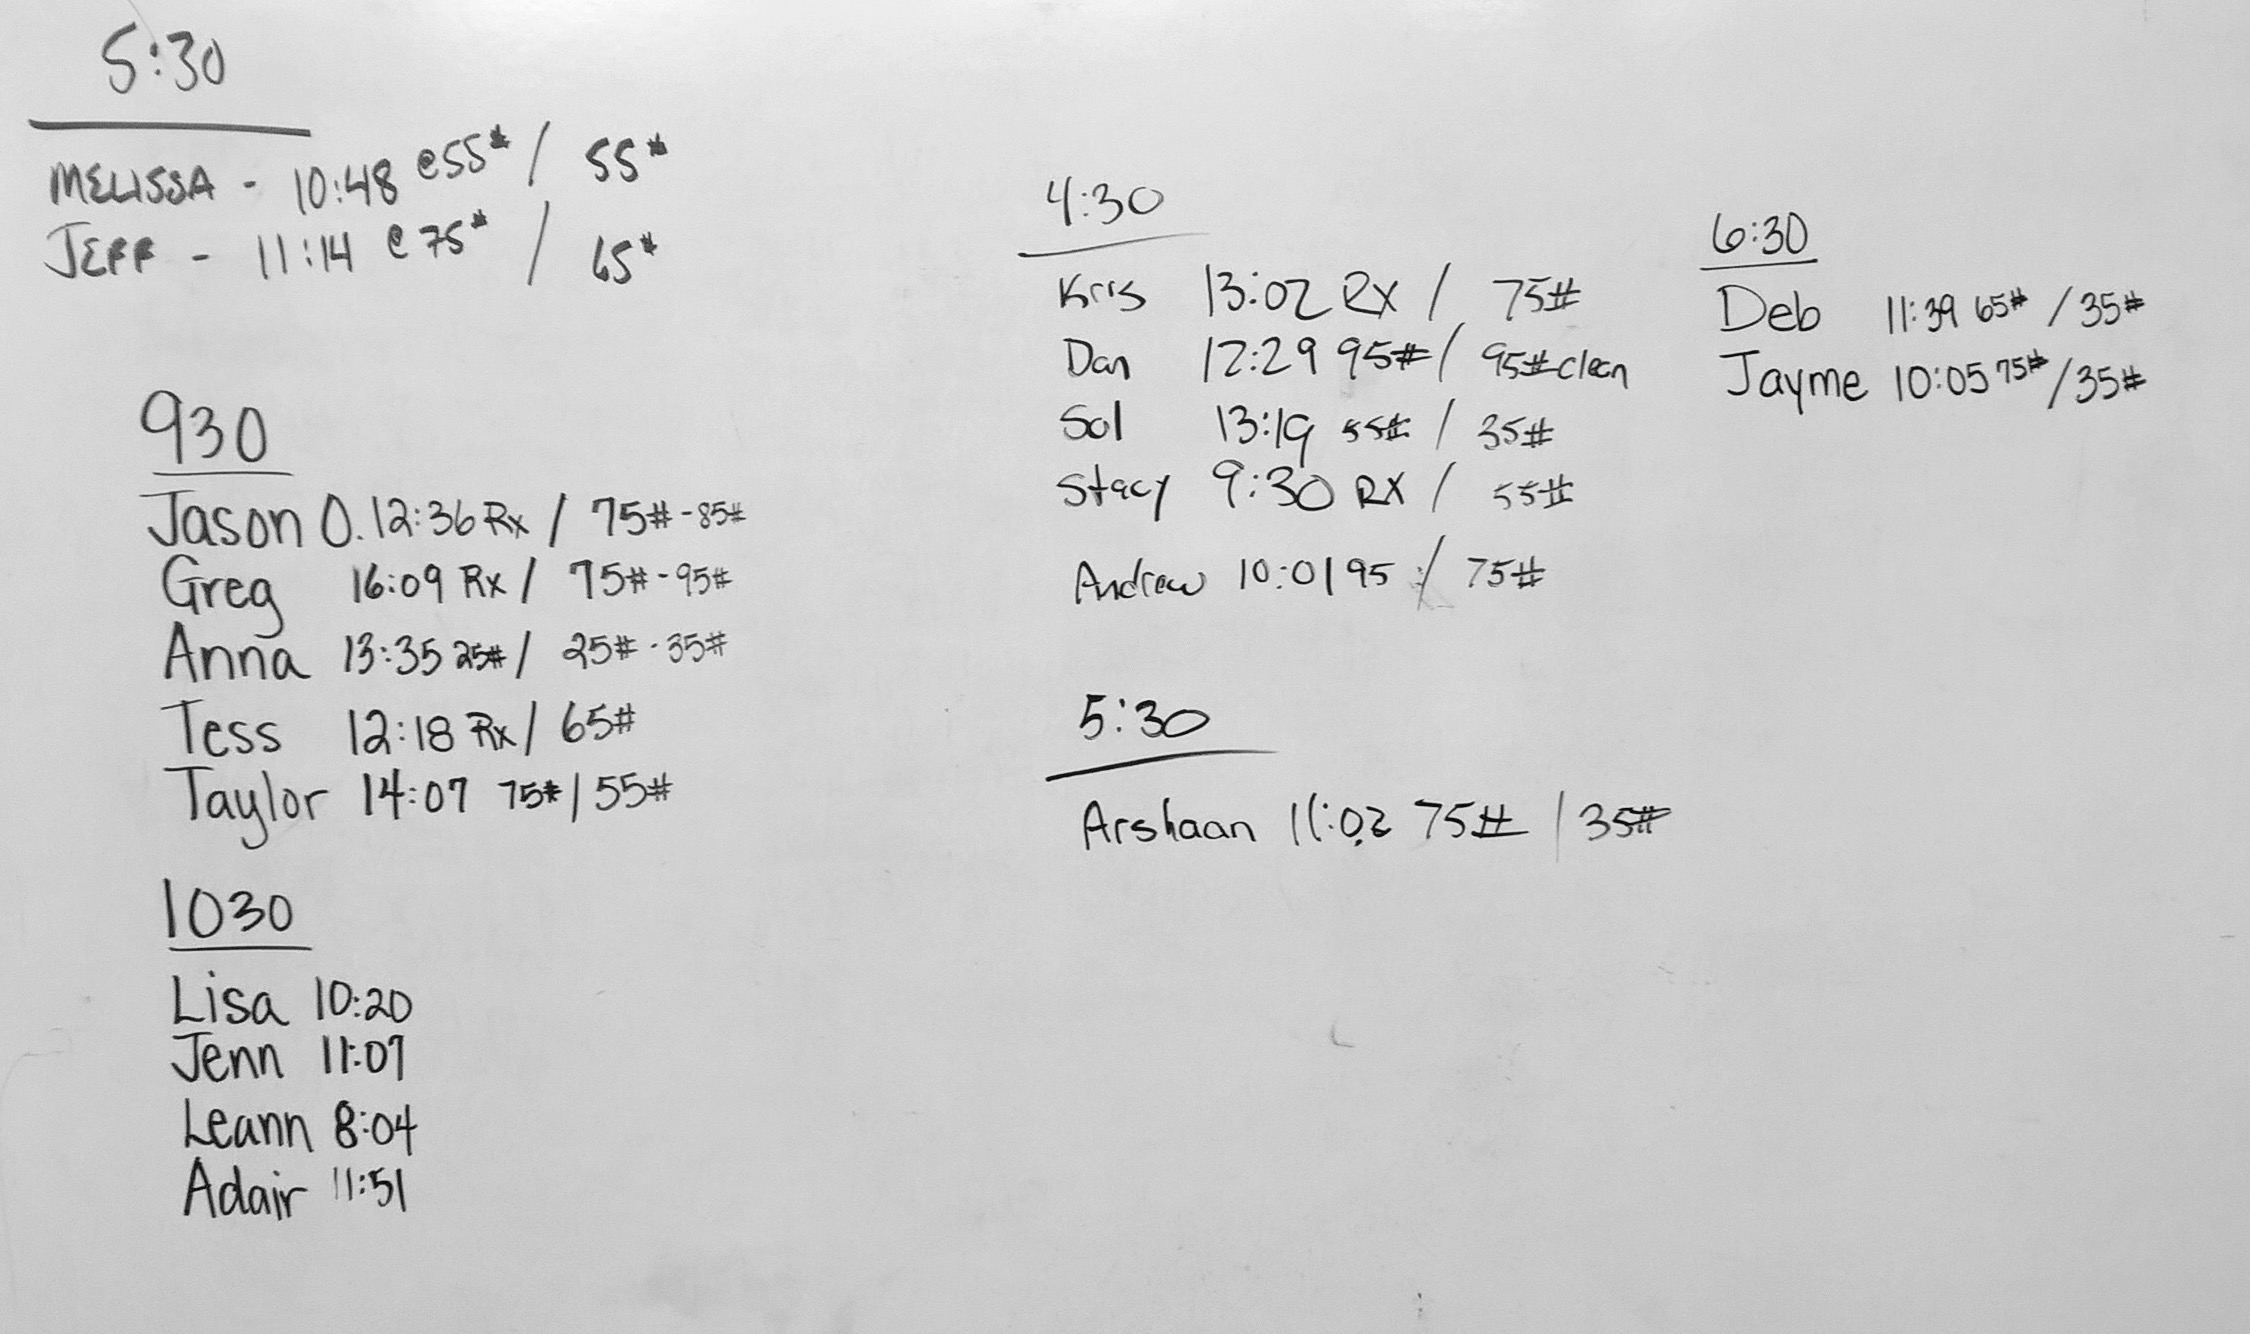 5:30
MELISSA - 10:48 @55# / 55#
JEFF - 11:14 @75# / 65#
930
Jason O. 12:36 Rx / 75# - 85#
Greg 16:09 Rx / 75# - 95#
Anna 13:35 25# / 25# - 35#
Tess 12:18 Rx / 65#
Taylor 14:07 75# / 55#
1030
Lisa 10:20
Jenn 11:07
Leann 8:04
Adair 11:51
4:30
Kris 13:02 RX / 75#
Dan 12:29 95# / 95# clean
Sol 13:19 55# / 35#
Stacy 9:30 RX / 55#
Andrew 10:01 95 / 75#
5:30
Arshaan 11:02 75# / 35#
6:30
Deb 11:39 65# / 35#
Jayme 10:05 75# / 35#